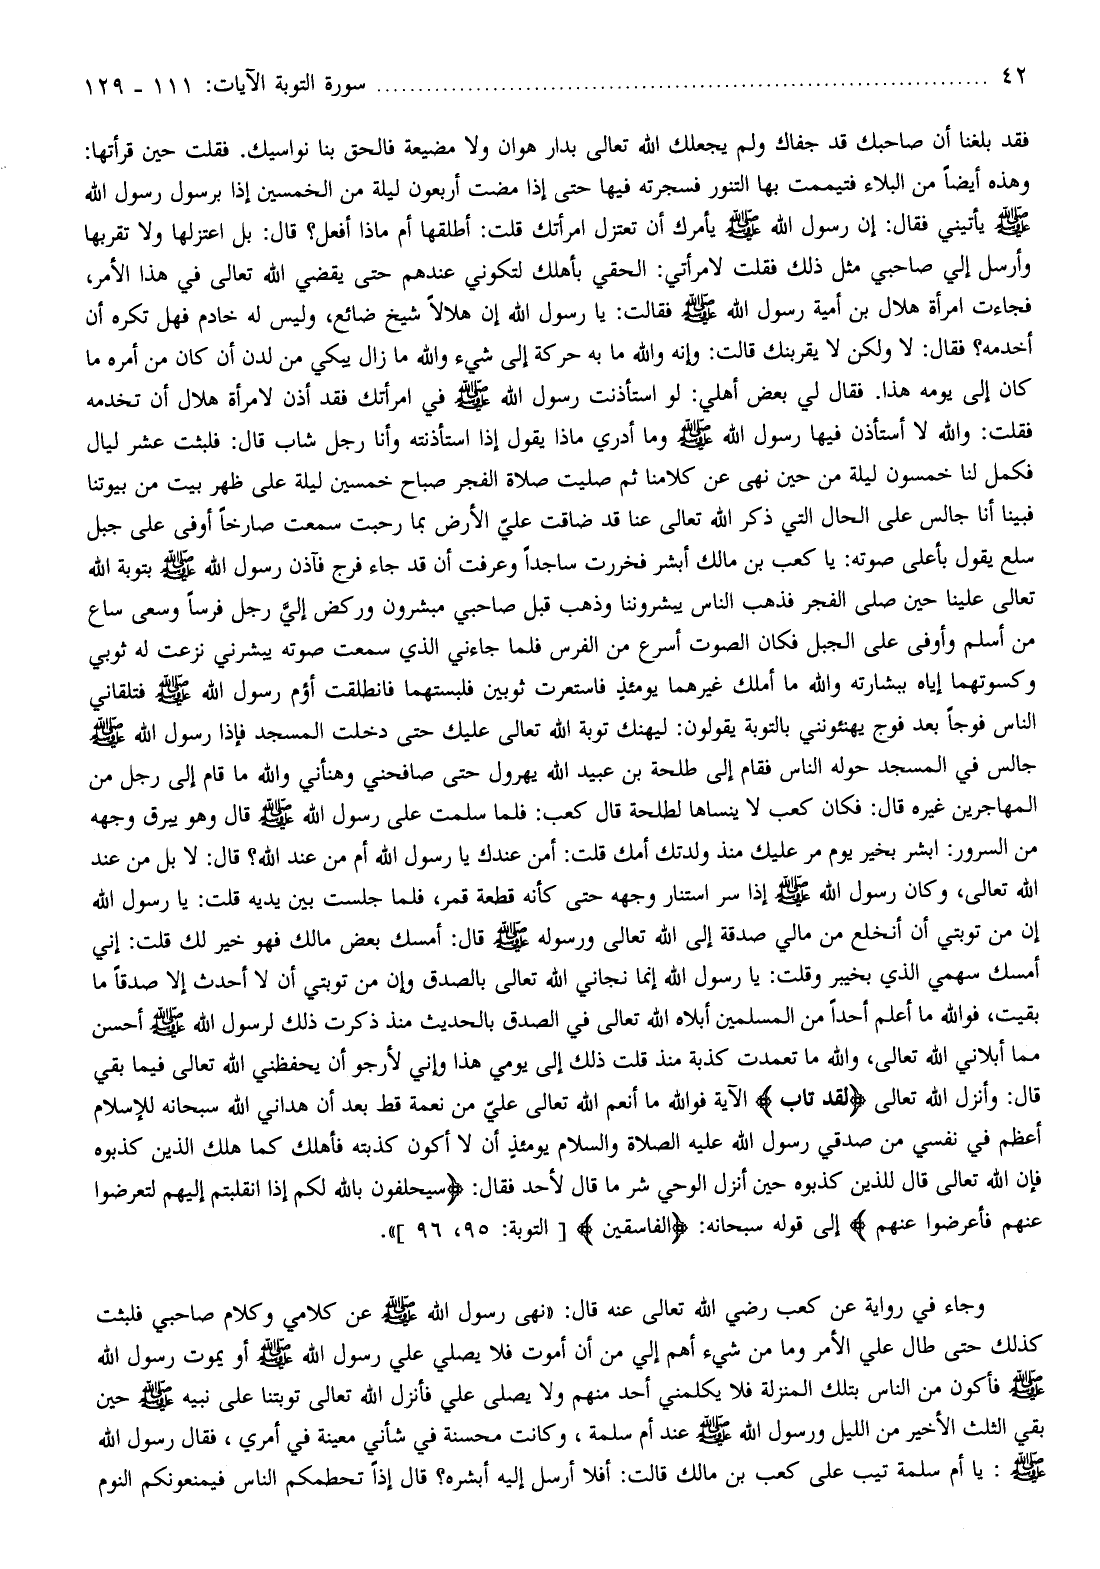 ٤٢ ........................................ سورة التوبة الآيات: ١١١ ـ ١٢٩
فقد بلغنا أن صاحبك قد جفاك ولم يجعلك الله تعالى بدار هوان ولا مضيعة فالحق بنا نواسيك. فقلت حين قرأتها:
وهذه أيضاً من البلاء فتيممت بها التنور فسجرته فيها حتى إذا مضت أربعون ليلة من الخمسين إذا برسول رسول الله
ﷺ يأتيني فقال: إن رسول الله ﷺ يأمرك أن تعتزل امرأتك قلت: أطلقها أم ماذا أفعل؟ قال: بل اعتزلها ولا تقربها
وأرسل إلي صاحبي مثل ذلك فقلت لامرأتي: الحقي بأهلك لتكوني عندهم حتى يقضي الله تعالى في هذا الأمر،
فجاءت امرأة هلال بن أمية رسول الله ﷺ فقالت: يا رسول الله إن هلالاً شيخ ضائع، وليس له خادم فهل تكره أن
أخدمه؟ فقال: لا ولكن لا يقربنك قالت: وإنه والله ما به حركة إلى شيء والله ما زال يبكي من لدن أن كان من أمره ما
كان إلى يومه هذا. فقال لي بعض أهلي: لو استأذنت رسول الله ﷺ في امرأتك فقد أذن لامرأة هلال أن تخدمه
فقلت: والله لا أستأذن فيها رسول الله ﷺ وما أدري ماذا يقول إذا استأذنته وأنا رجل شاب قال: فلبثت عشر ليال
فكمل لنا خمسون ليلة من حين نهى عن كلامنا ثم صليت صلاة الفجر صباح خمسين ليلة على ظهر بيت من بيوتنا
فبينا أنا جالس على الحال التي ذكر الله تعالى عنا قد ضاقت عليّ الأرض بما رحبت سمعت صارخاً أوفى على جبل
سلع يقول بأعلى صوته: يا كعب بن مالك أبشر فخررت ساجداً وعرفت أن قد جاء فرج فآذن رسول الله ﷺ بتوبة الله
تعالى علينا حين صلى الفجر فذهب الناس يبشروننا وذهب قبل صاحبي مبشرون وركض إليَّ رجل فرساً وسعى ساع
من أسلم وأوفى على الجبل فكان الصوت أسرع من الفرس فلما جاءني الذي سمعت صوته يبشرني نزعت له ثوبي
وكسوتهما إياه ببشارته والله ما أملك غيرهما يومئذٍ فاستعرت ثوبين فلبستهما فانطلقت أؤم رسول الله ﷺ فتلقاني
الناس فوجاً بعد فوج يهنئونني بالتوبة يقولون: ليهنك توبة الله تعالى عليك حتى دخلت المسجد فإذا رسول الله ﷺ
جالس في المسجد حوله الناس فقام إلى طلحة بن عبيد الله يهرول حتى صافحني وهنأني والله ما قام إلى رجل من
المهاجرين غيره قال: فكان كعب لا ينساها لطلحة قال كعب: فلما سلمت على رسول الله ﷺ قال وهو يبرق وجهه
من السرور: ابشر بخير يوم مر عليك منذ ولدتك أمك قلت: أمن عندك يا رسول الله أم من عند الله؟ قال: لا بل من عند
الله تعالى، وكان رسول الله ﷺ إذا سر استنار وجهه حتى كأنه قطعة قمر، فلما جلست بين يديه قلت: يا رسول الله
إن من توبتي أن أنخلع من مالي صدقة إلى الله تعالى ورسوله ﷺ قال: أمسك بعض مالك فهو خير لك قلت: إني
أمسك سهمي الذي بخيبر وقلت: يا رسول الله إنما نجاني الله تعالى بالصدق وإن من توبتي أن لا أحدث إلا صدقاً ما
بقيت، فوالله ما أعلم أحداً من المسلمين أبلاه الله تعالى في الصدق بالحديث منذ ذكرت ذلك لرسول الله ﷺ أحسن
مما أبلاني الله تعالى، والله ما تعمدت كذبة منذ قلت ذلك إلى يومي هذا وإني لأرجو أن يحفظني الله تعالى فيما بقي
قال: وأنزل الله تعالى ﴿لقد تاب﴾ الآية فوالله ما أنعم الله تعالى عليّ من نعمة قط بعد أن هداني الله سبحانه للإسلام
أعظم في نفسي من صدقي رسول الله عليه الصلاة والسلام يومئذٍ أن لا أكون كذبته فأهلك كما هلك الذين كذبوه
فإن الله تعالى قال للذين كذبوه حين أنزل الوحي شر ما قال لأحد فقال: ﴿سيحلفون بالله لكم إذا انقلبتم إليهم لتعرضوا
عنهم فأعرضوا عنهم﴾ إلى قوله سبحانه: ﴿الفاسقين﴾ [ التوبة: ٩٥، ٩٦ ]».
وجاء في رواية عن كعب رضي الله تعالى عنه قال: «نهى رسول الله ﷺ عن كلامي وكلام صاحبي فلبثت
كذلك حتى طال علي الأمر وما من شيء أهم إلي من أن أموت فلا يصلي علي رسول الله ﷺ أو يموت رسول الله
ﷺ فأكون من الناس بتلك المنزلة فلا يكلمني أحد منهم ولا يصلى علي فأنزل الله تعالى توبتنا على نبيه ﷺ حين
بقي الثلث الأخير من الليل ورسول الله ﷺ عند أم سلمة ، وكانت محسنة في شأني معينة في أمري ، فقال رسول الله
ﷺ : يا أم سلمة تيب على كعب بن مالك قالت: أفلا أرسل إليه أبشره؟ قال إذاً تحطمكم الناس فيمنعونكم النوم